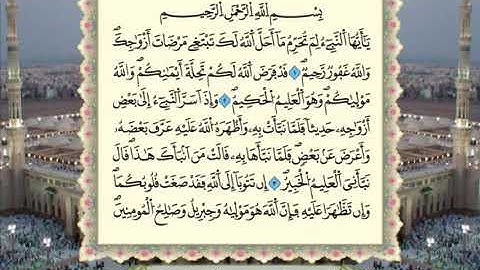 بِسْمِ اللَّهِ الرَّحْمَٰنِ الرَّحِيمِ
يَا أَيُّهَا النَّبِيُّ لِمَ تُحَرِّمُ مَا أَحَلَّ اللَّهُ لَكَ تَبْتَغِي مَرْضَاتَ أَزْوَاجِكَ
وَاللَّهُ غَفُورٌ رَحِيمٌ ١ قَدْ فَرَضَ اللَّهُ لَكُمْ تَحِلَّةَ أَيْمَانِكُمْ وَاللَّهُ
مَوْلَاكُمْ وَهُوَ الْعَلِيمُ الْحَكِيمُ ٢ وَإِذْ أَسَرَّ النَّبِيُّ إِلَىٰ بَعْضِ
أَزْوَاجِهِ حَدِيثًا فَلَمَّا نَبَّأَتْ بِهِ وَأَظْهَرَهُ اللَّهُ عَلَيْهِ عَرَّفَ بَعْضَهُ
وَأَعْرَضَ عَنْ بَعْضٍ فَلَمَّا نَبَّأَهَا بِهِ قَالَتْ مَنْ أَنْبَأَكَ هَٰذَا قَالَ
نَبَّأَنِيَ الْعَلِيمُ الْخَبِيرُ ٣ إِنْ تَتُوبَا إِلَى اللَّهِ فَقَدْ صَغَتْ قُلُوبُكُمَا
وَإِنْ تَظَاهَرَا عَلَيْهِ فَإِنَّ اللَّهَ هُوَ مَوْلَاهُ وَجِبْرِيلُ وَصَالِحُ الْمُؤْمِنِينَ